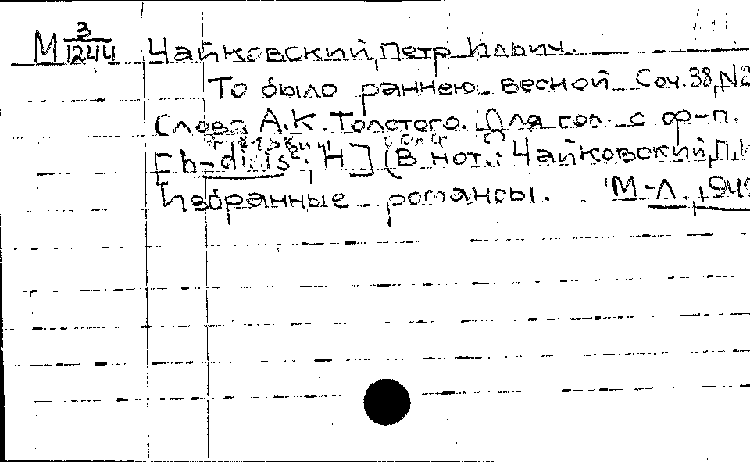 М 3/1244 Чайковский, Петр Ильич.
То было раннею весной Соч. 38, N2
Слова А.К. Толстого. Для гол. с ф-п.
[h-dis²; H] (В нот.: Чайковский, П.И
Избранные романсы. М-Л., 194